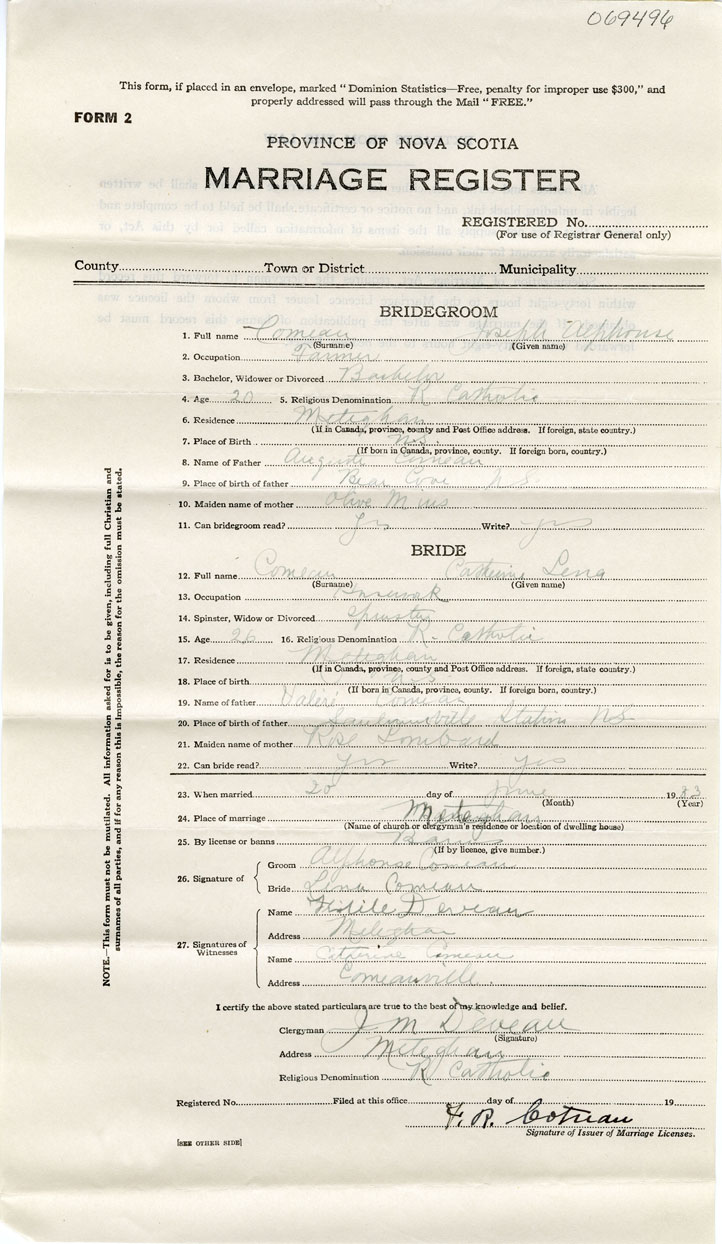 069496
This form, if placed in an envelope, marked “Dominion Statistics—Free, penalty for improper use $300,” and
properly addressed will pass through the Mail “FREE.”
FORM 2
PROVINCE OF NOVA SCOTIA
MARRIAGE REGISTER
REGISTERED No.
(For use of Registrar General only)
County Town or District Municipality
BRIDEGROOM
1. Full name Comeau Joseph Alphonse
(Surname) (Given name)
2. Occupation Farmer
3. Bachelor, Widower or Divorced Bachelor
4. Age 20 5. Religious Denomination R Catholic
6. Residence Meteghan
(If in Canada, province, county and Post Office address. If foreign, state country.)
7. Place of Birth N.S.
(If born in Canada, province, county. If foreign born, country.)
8. Name of Father Comeau
9. Place of birth of father Bear Cove N S
10. Maiden name of mother Olive
11. Can bridegroom read? Yes Write? yes
BRIDE
12. Full name Comeau Catherine Lena
(Surname) (Given name)
13. Occupation
14. Spinster, Widow or Divorced Spinster
15. Age 26 16. Religious Denomination R. Catholic
17. Residence Meteghan
(If in Canada, province, county and Post Office address. If foreign, state country.)
18. Place of birth N.S.
(If born in Canada, province, county. If foreign born, country.)
19. Name of father Comeau
20. Place of birth of father Saulnierville Station N S
21. Maiden name of mother Rose Lombard
22. Can bride read? Yes Write? Yes
23. When married 20 day of June 19
(Month) (Year)
24. Place of marriage Meteghan
(Name of church or clergyman's residence or location of dwelling house)
25. By license or banns Banns
(If by licence, give number.)
26. Signature of
Groom Alphonse Comeau
Bride Lena Comeau
27. Signatures of
Witnesses
Name Deveau
Address Meteghan
Name Catherine Comeau
Address Comeauville
I certify the above stated particulars are true to the best of my knowledge and belief.
Clergyman J M Deveau
(Signature)
Address Meteghan
Religious Denomination R Catholic
Registered No. Filed at this office day of 19
F. R.
Signature of Issuer of Marriage Licenses.
[SEE OTHER SIDE]
NOTE.—This form must not be mutilated. All information asked for is to be given, including full Christian and
surnames of all parties, and if for any reason this is impossible, the reason for the omission must be stated.